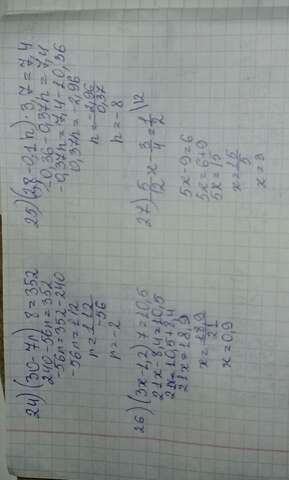 24) (30-7n) 8=352
240-56n=352
-56n=352-240
-56n=112
n=112/-56
n=-2
25) (2,8-0,1n)·3,7=7,4
10,36-0,37n=7,4
-0,37n=7,4-10,36
0,37n=-2,96
n=-2,96/0,37
n=-8
26) (3x-1,2) 7=10,5
21x-8,4=10,5
21x=10,5+8,4
21x=18,9
x=18,9/21
x=0,9
27) 5/12x-3/4=1/2 |12
5x-9=6
5x=6+9
5x=15
x=15/5
x=3